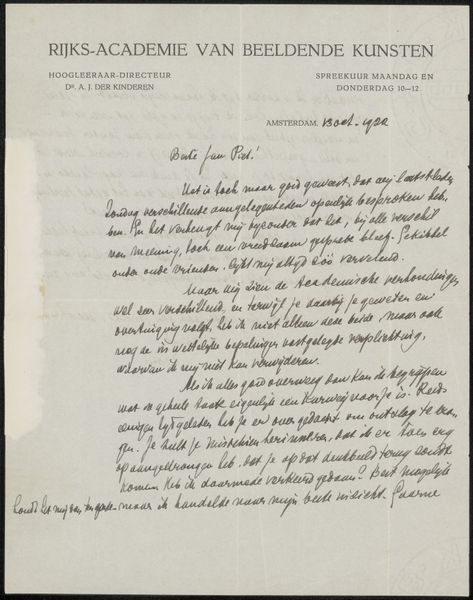 RIJKS-ACADEMIE VAN BEELDENDE KUNSTEN
HOOGLEERAAR-DIRECTEUR
DR. A. J. DER KINDEREN
SPREEKUUR MAANDAG EN
DONDERDAG 10—12
AMSTERDAM, 13 Oct. 1922
Beste Jan Piet!
Het is toch maar goed geweest, dat wij laatstleden
Zondag verschillende aangelegenheden openlijk besproken heb-
ben. En het verheugt mij bijzonder dat het, bij alle verschil
van meening, toch een vreedzaam gesprek bleef. Gekibbel
onder oude vrienden lijkt mij altijd zóó vervelend.
Maar wij zien de Academische verhoudingen
wel zeer verschillend, en terwijl je daarbij je geweten en
overtuiging volgt, heb ik niet alleen deze beide, maar ook
nog de in wettelijke bepalingen vastgelegde verplichting,
waarvan ik mij niet kan verwijderen.
Als ik alles goed overweeg dan kan ik begrijpen
wat de geheele taak eigenlijk een karwei voor je is. Reeds
eenigen tijd geleden heb je er over gedacht om ontslag te vra-
gen. Je zult je misschien herinneren, dat ik er toen erg
op aangedrongen heb, dat je op dat denkbeeld terug zoudt
komen. Heb ik daarmede verkeerd gedaan? Best mogelijk
maar ik handelde naar mijn beste inzicht. Gaarne
houd het mij dan ten goede